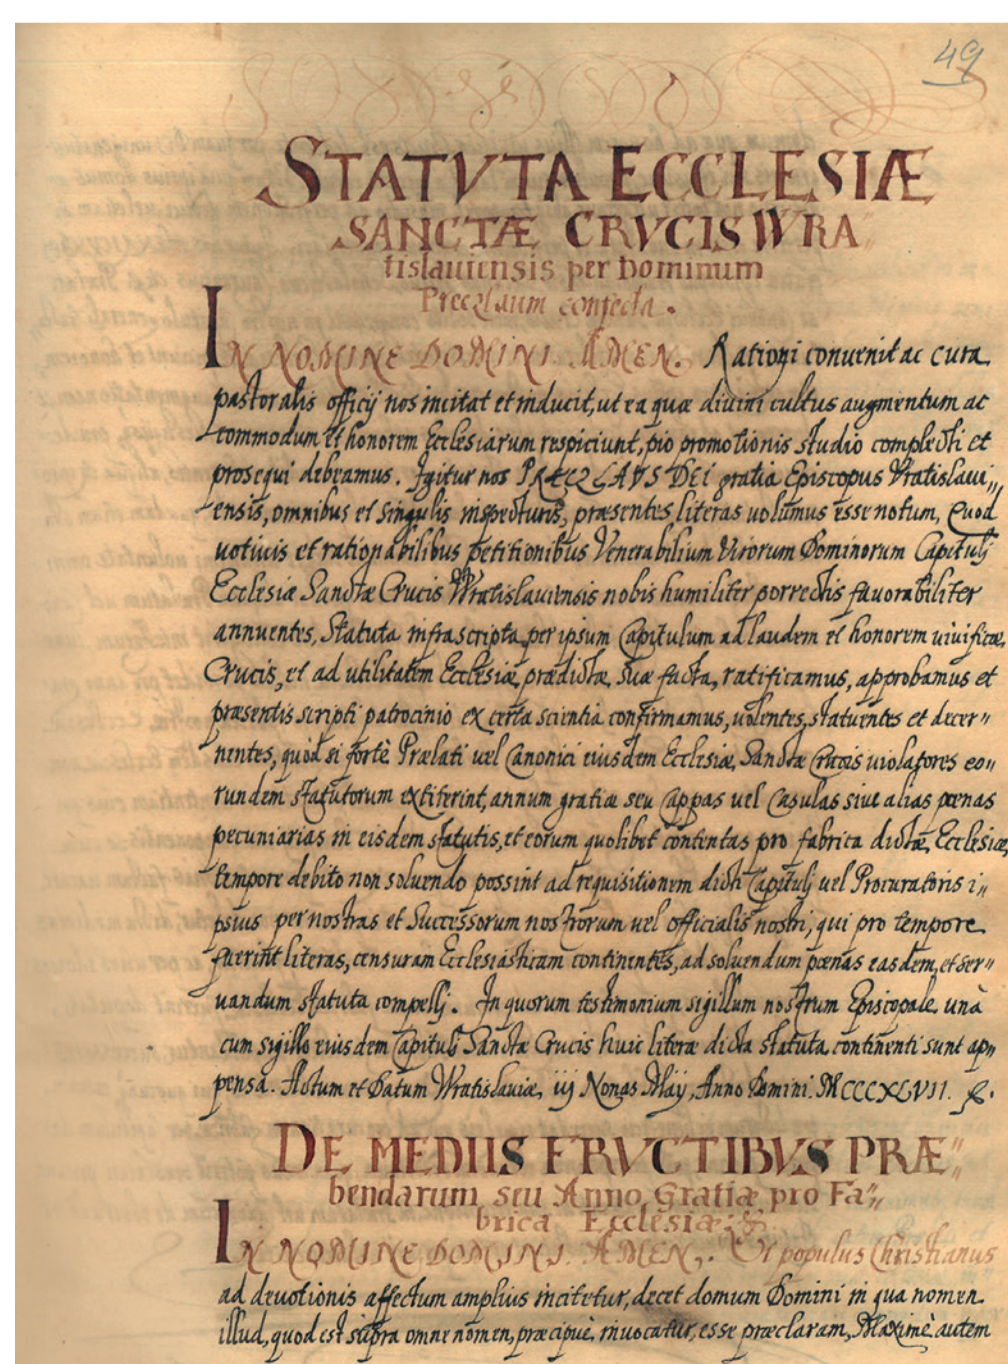 49
STATVTA ECCLESIÆ
SANCTÆ CRVCIS WRA〃
tislauiensis per Dominum
Preczlaum confecta.
IN NOMINE DOMINI. AMEN. Rationi conuenit ac cura
pastoralis officij nos incitat et inducit, ut ea quæ diuini cultus augmentum ac
commodum et honorem Ecclesiarum respiciunt, pio promotionis studio complecti et
prosequi debeamus. Igitur nos PRÆCZLAVS DEI gratia Episcopus Vratislaui〃
ensis, omnibus et singulis inspecturis, præsentes literas uolumus esse notum, Quod
uotiuis et rationabilibus petitionibus Venerabilium Virorum Dominorum Capitulj
Ecclesiæ Sanctæ Crucis Wratislauiensis nobis humiliter porrectis fauorabiliter
annuentes, Statuta infrascripta per ipsum Capitulum ad laudem et honorem uiuificæ
Crucis, et ad utilitatem Ecclesiæ prædictæ suæ facta, ratificamus, approbamus et
præsentis scripti patrocinio ex certa scientia confirmamus, uolentes, statuentes et decer〃
nentes, quòd si fortè Prælati uel Canonici eiusdem Ecclesiæ Sanctæ Crucis uiolatores eo〃
rundem statutorum extiterint, annum gratiæ seu Cappas uel Casulas siue alias pœnas
pecuniarias in eisdem statutis, et eorum quolibet contentas pro fabrica dictæ Ecclesiæ
tempore debito non soluendo possint ad requisitionem dicti Capitulj uel Procuratoris i〃
psius per nostras et Successorum nostrorum uel officialis nostri, qui pro tempore
fuerint literas, censuram Ecclesiasticam continentes, ad soluendum pœnas easdem, et ser〃
uandum statuta compellj. In quorum testimonium sigillum nostrum Episcopale unà
cum sigillo eiusdem Capitulj Sanctæ Crucis huic literæ dicta statuta continenti sunt ap〃
pensa. Actum et Datum Wratislauiæ iij Nonas Maij, Anno Domini. MCCCXLVII.
DE MEDIIS FRVCTIBVS PRÆ〃
bendarum seu Anno Gratiæ pro Fa〃
brica Ecclesiæ
IN NOMINE DOMINI. AMEN. Vt populus Christianus
ad deuotionis affectum amplius incitetur, decet domum Domini in qua nomen
illud, quod est supra omne nomen, præcipuè inuocatur, esse præclaram, Maximè autem